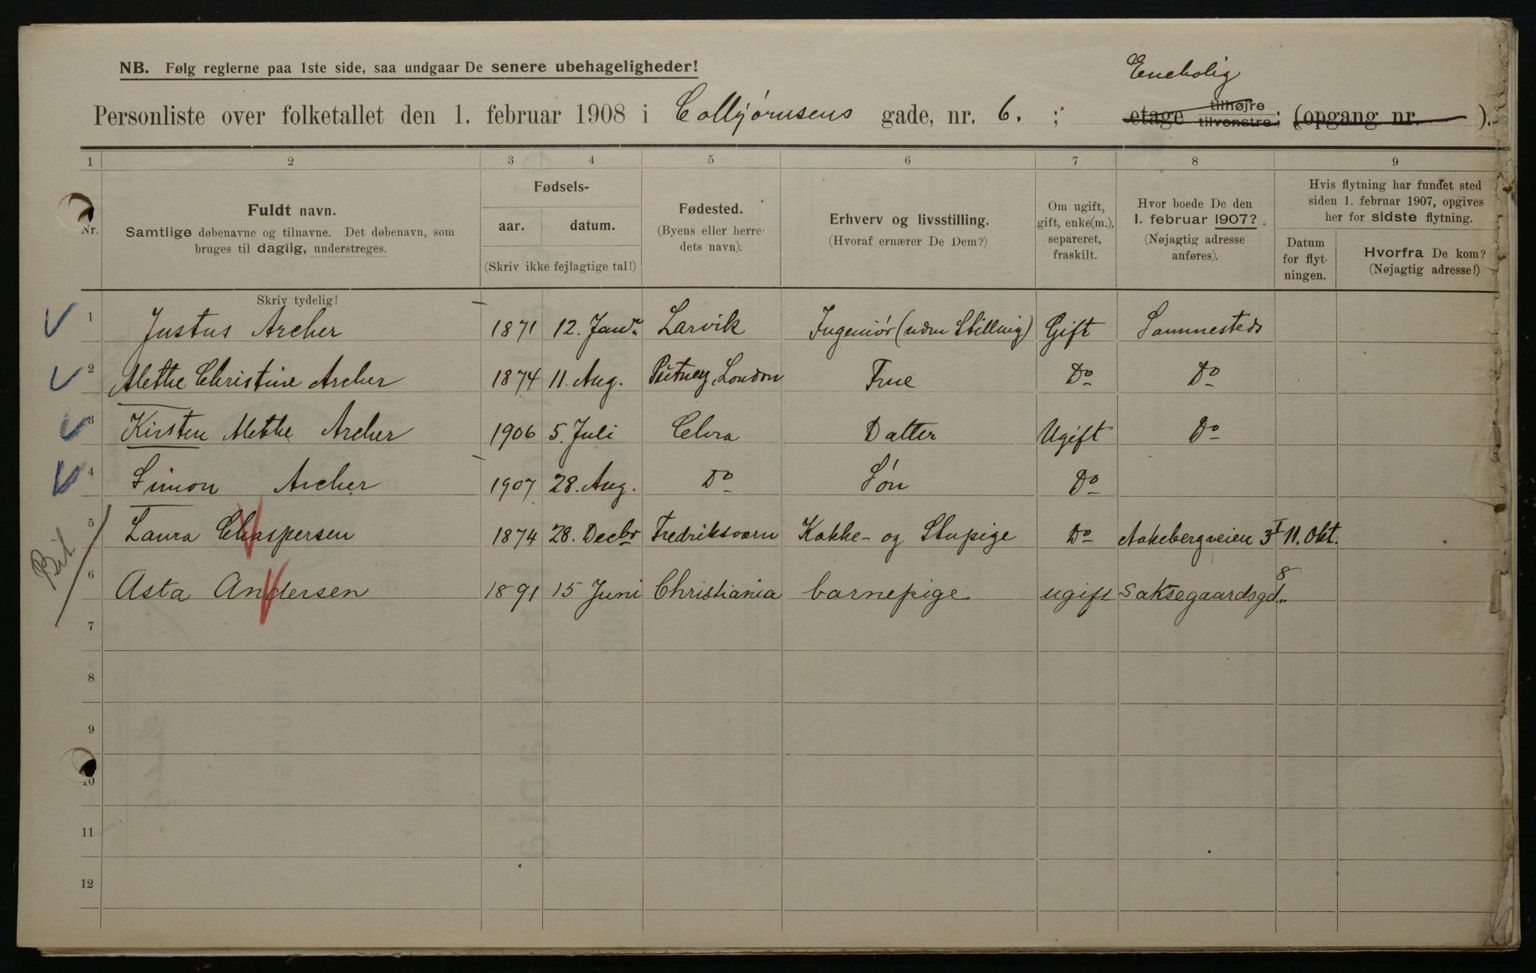 NB. Følg reglerne paa 1ste side, saa undgaar De senere ubehageligheder!
Enebolig
Personliste over folketallet den 1. februar 1908 i Colbjörnsens gade, nr. 6. ; etage tilhøjre tilvenstre; (opgang nr. ).
1 2 3 4 5 6 7 8 9
Nr.
Fuldt navn.
Samtlige døbenavne og tilnavne. Det døbenavn, som
bruges til daglig, understreges.
Skriv tydelig!
Fødsels-
aar. datum.
(Skriv ikke fejlagtige tal!)
Fødested.
(Byens eller herre-
dets navn).
Erhverv og livsstilling.
(Hvoraf ernærer De Dem?)
Om ugift,
gift, enke(m.),
separeret,
fraskilt.
Hvor boede De den
1. februar 1907?
(Nøjagtig adresse
anføres).
Hvis flytning har fundet sted
siden 1. februar 1907, opgives
her for sidste flytning.
Datum
for flyt-
ningen.
Hvorfra De kom?
(Nøjagtig adresse!)
1 Justus Archer 1871 12. Janr. Larvik Ingeniör (uden Stilling) Gift Sammesteds
2 Methe Christine Archer 1874 11. Aug. Putney, London Frue Do Do
3 Kirsten Methe Archer 1906 5. Juli Chra Datter Ugift Do
4 Simon Archer 1907 28. Aug. Do Sön Do
5 Laura Chaspersen 1874 28. Decbr Fredriksværn Kokke- og Stupige Do Aakebergveien 3 I 11. Okt.
6 Asta Andersen 1891 15 Juni Christiania barnepige ugift Saksegaardsgd. 8
7
8
9
10
11
12